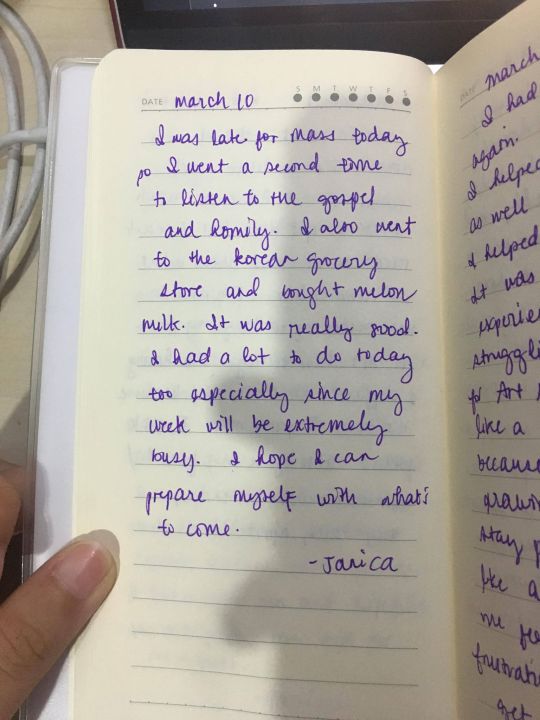 DATE march 10
S M T W T F S
I was late for mass today
so I went a second time
to listen to the gospel
and homily. I also went
to the korean grocery
store and bought melon
milk. It was really good.
I had a lot to do today
too especially since my
week will be extremely
busy. I hope I can
prepare myself with what's
to come.
- Janica
DATE march
I had
again.
I helped
as well
I helped
It was
experie
struggli
for Art
like a
because
drawin
stay
like a
me fee
frustrati
get